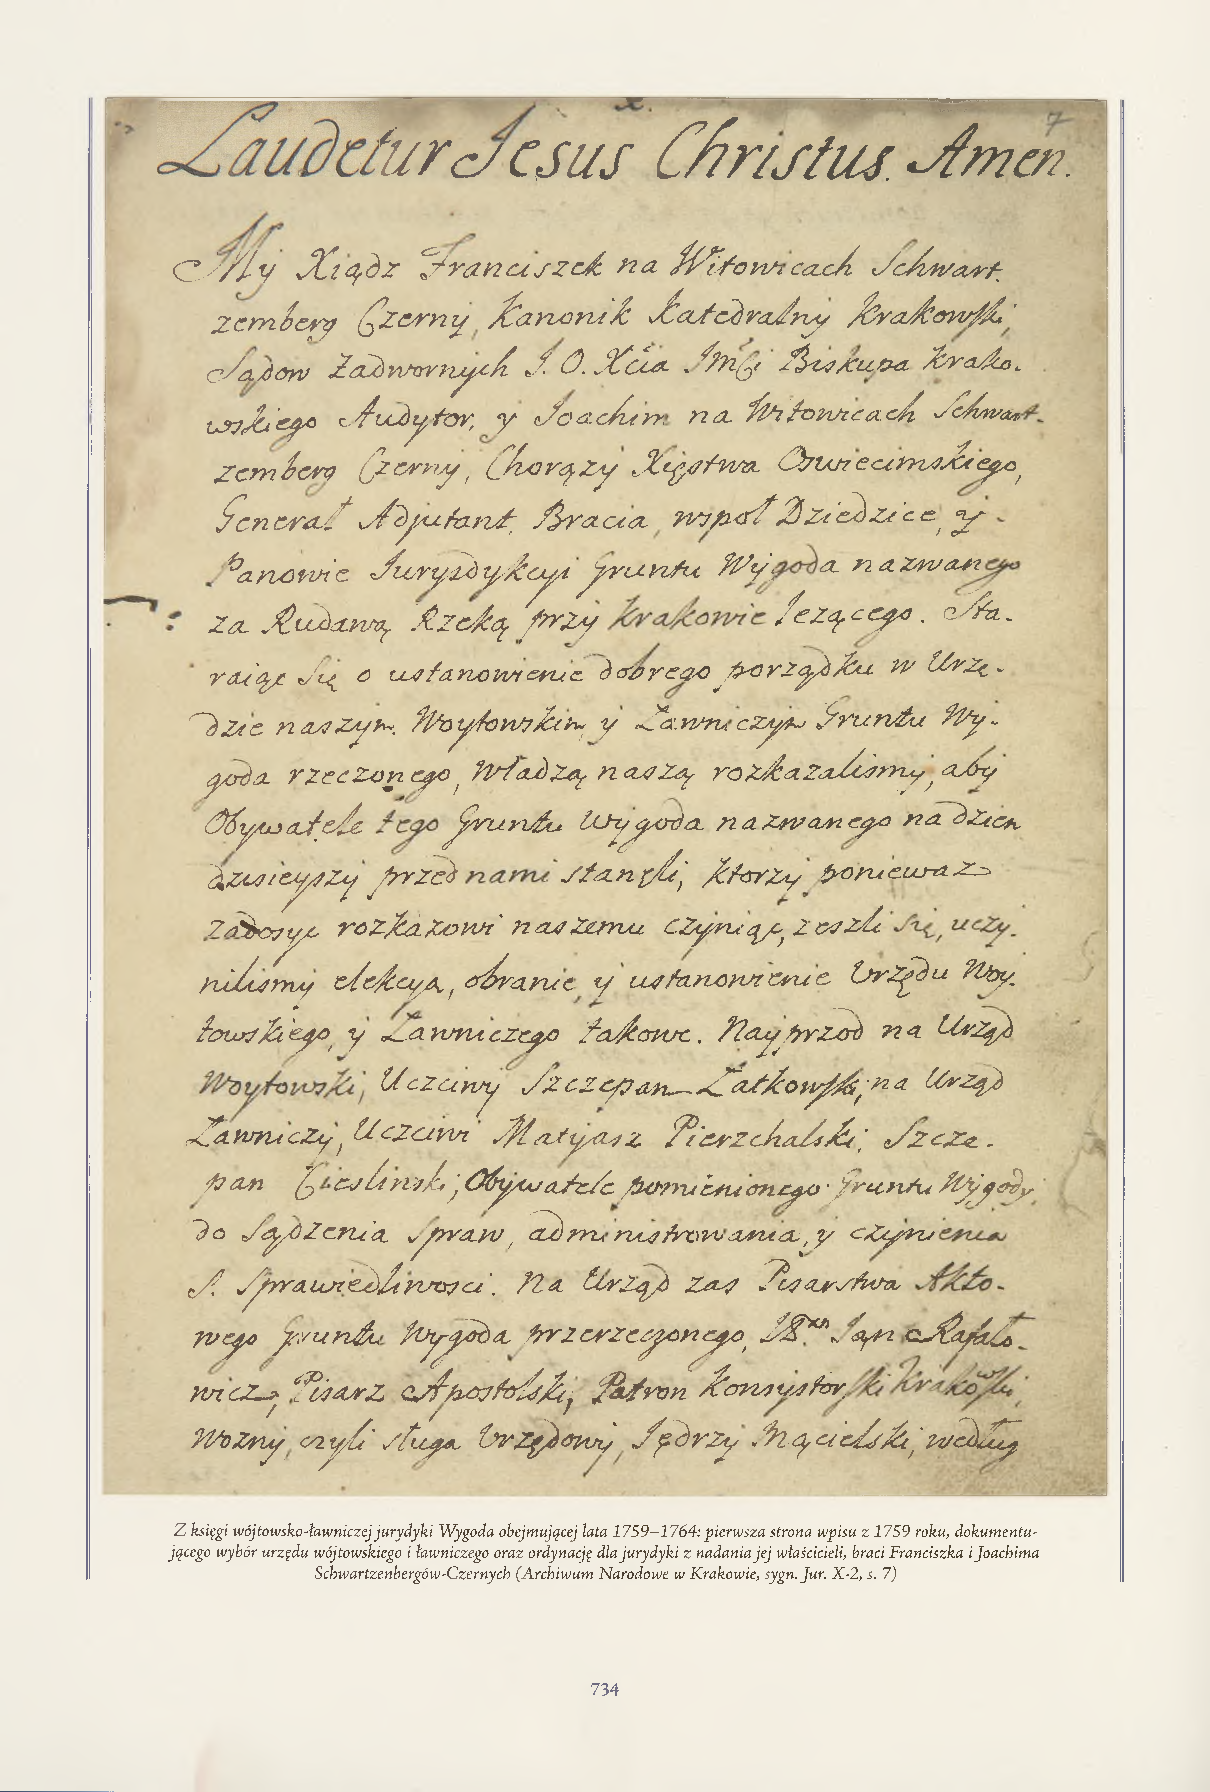 x.
7
Laudetur Jesus Christus. Amen.
My Xiądz Franciszek na Witowicach Schwart.
zemberg Czerny, Kanonik Katedralny Krakowski,
Sądow Zadwornych J. O. Xcia Jmci Biskupa Krako.
wskiego Audytor, y Joachim na Witowicach Schwart.
zemberg Czerny, Chorązy Xięstwa Oswiecimskiego,
Generał Adjutant, Bracia, wspoł Dziedzice, y
Panowie Jurysdykcyi Gruntu Wygoda nazwanego
za Rudawą Rzeką przy Krakowie lezącego. Sta.
raiąc Się o ustanowienie dobrego porządku w Urzę.
dzie naszym Woytowskim y Ławniczym Gruntu Wy.
goda rzeczonego, Władzą naszą rozkazalismy, aby
Obywatele tego Gruntu Wygoda nazwanego na dzien
dzisieyszy przed nami stanęli, ktorzy poniewaz
zadosyc rozkazowi naszemu czyniąc, zeszli się, uczy.
nilismy elekcyą, obranie, y ustanowienie Urzędu Woy.
towskiego, y Ławniczego takowe. Nayprzod na Urząd
Woytowski, Uczciwy Szczepan Łatkowski, na Urząd
Ławniczy, Uczciwi Matyjasz Pierzchalski, Szcze.
pan Cieslinski, Obywatele pomienionego Gruntu Wygody,
do Sądzenia Spraw, administrowania, y czynienia
S. Sprawiedliwosci. Na Urząd zas Pisarstwa Akto.
wego Gruntu Wygoda przerzeczonego, Jan Rafało.
wicz, Pisarz Apostolski, Patron Konsystorski Krakowski,
Wozny, czyli sługa Urzędowy, Jędrzy Mącielski, według
Z księgi wójtowsko-ławniczej jurydyki Wygoda obejmującej lata 1759–1764: pierwsza strona wpisu z 1759 roku, dokumentu-
jącego wybór urzędu wójtowskiego i ławniczego oraz ordynację dla jurydyki z nadania jej właścicieli, braci Franciszka i Joachima
Schwartzenbergów-Czernych (Archiwum Narodowe w Krakowie, sygn. Jur. X-2, s. 7)
734